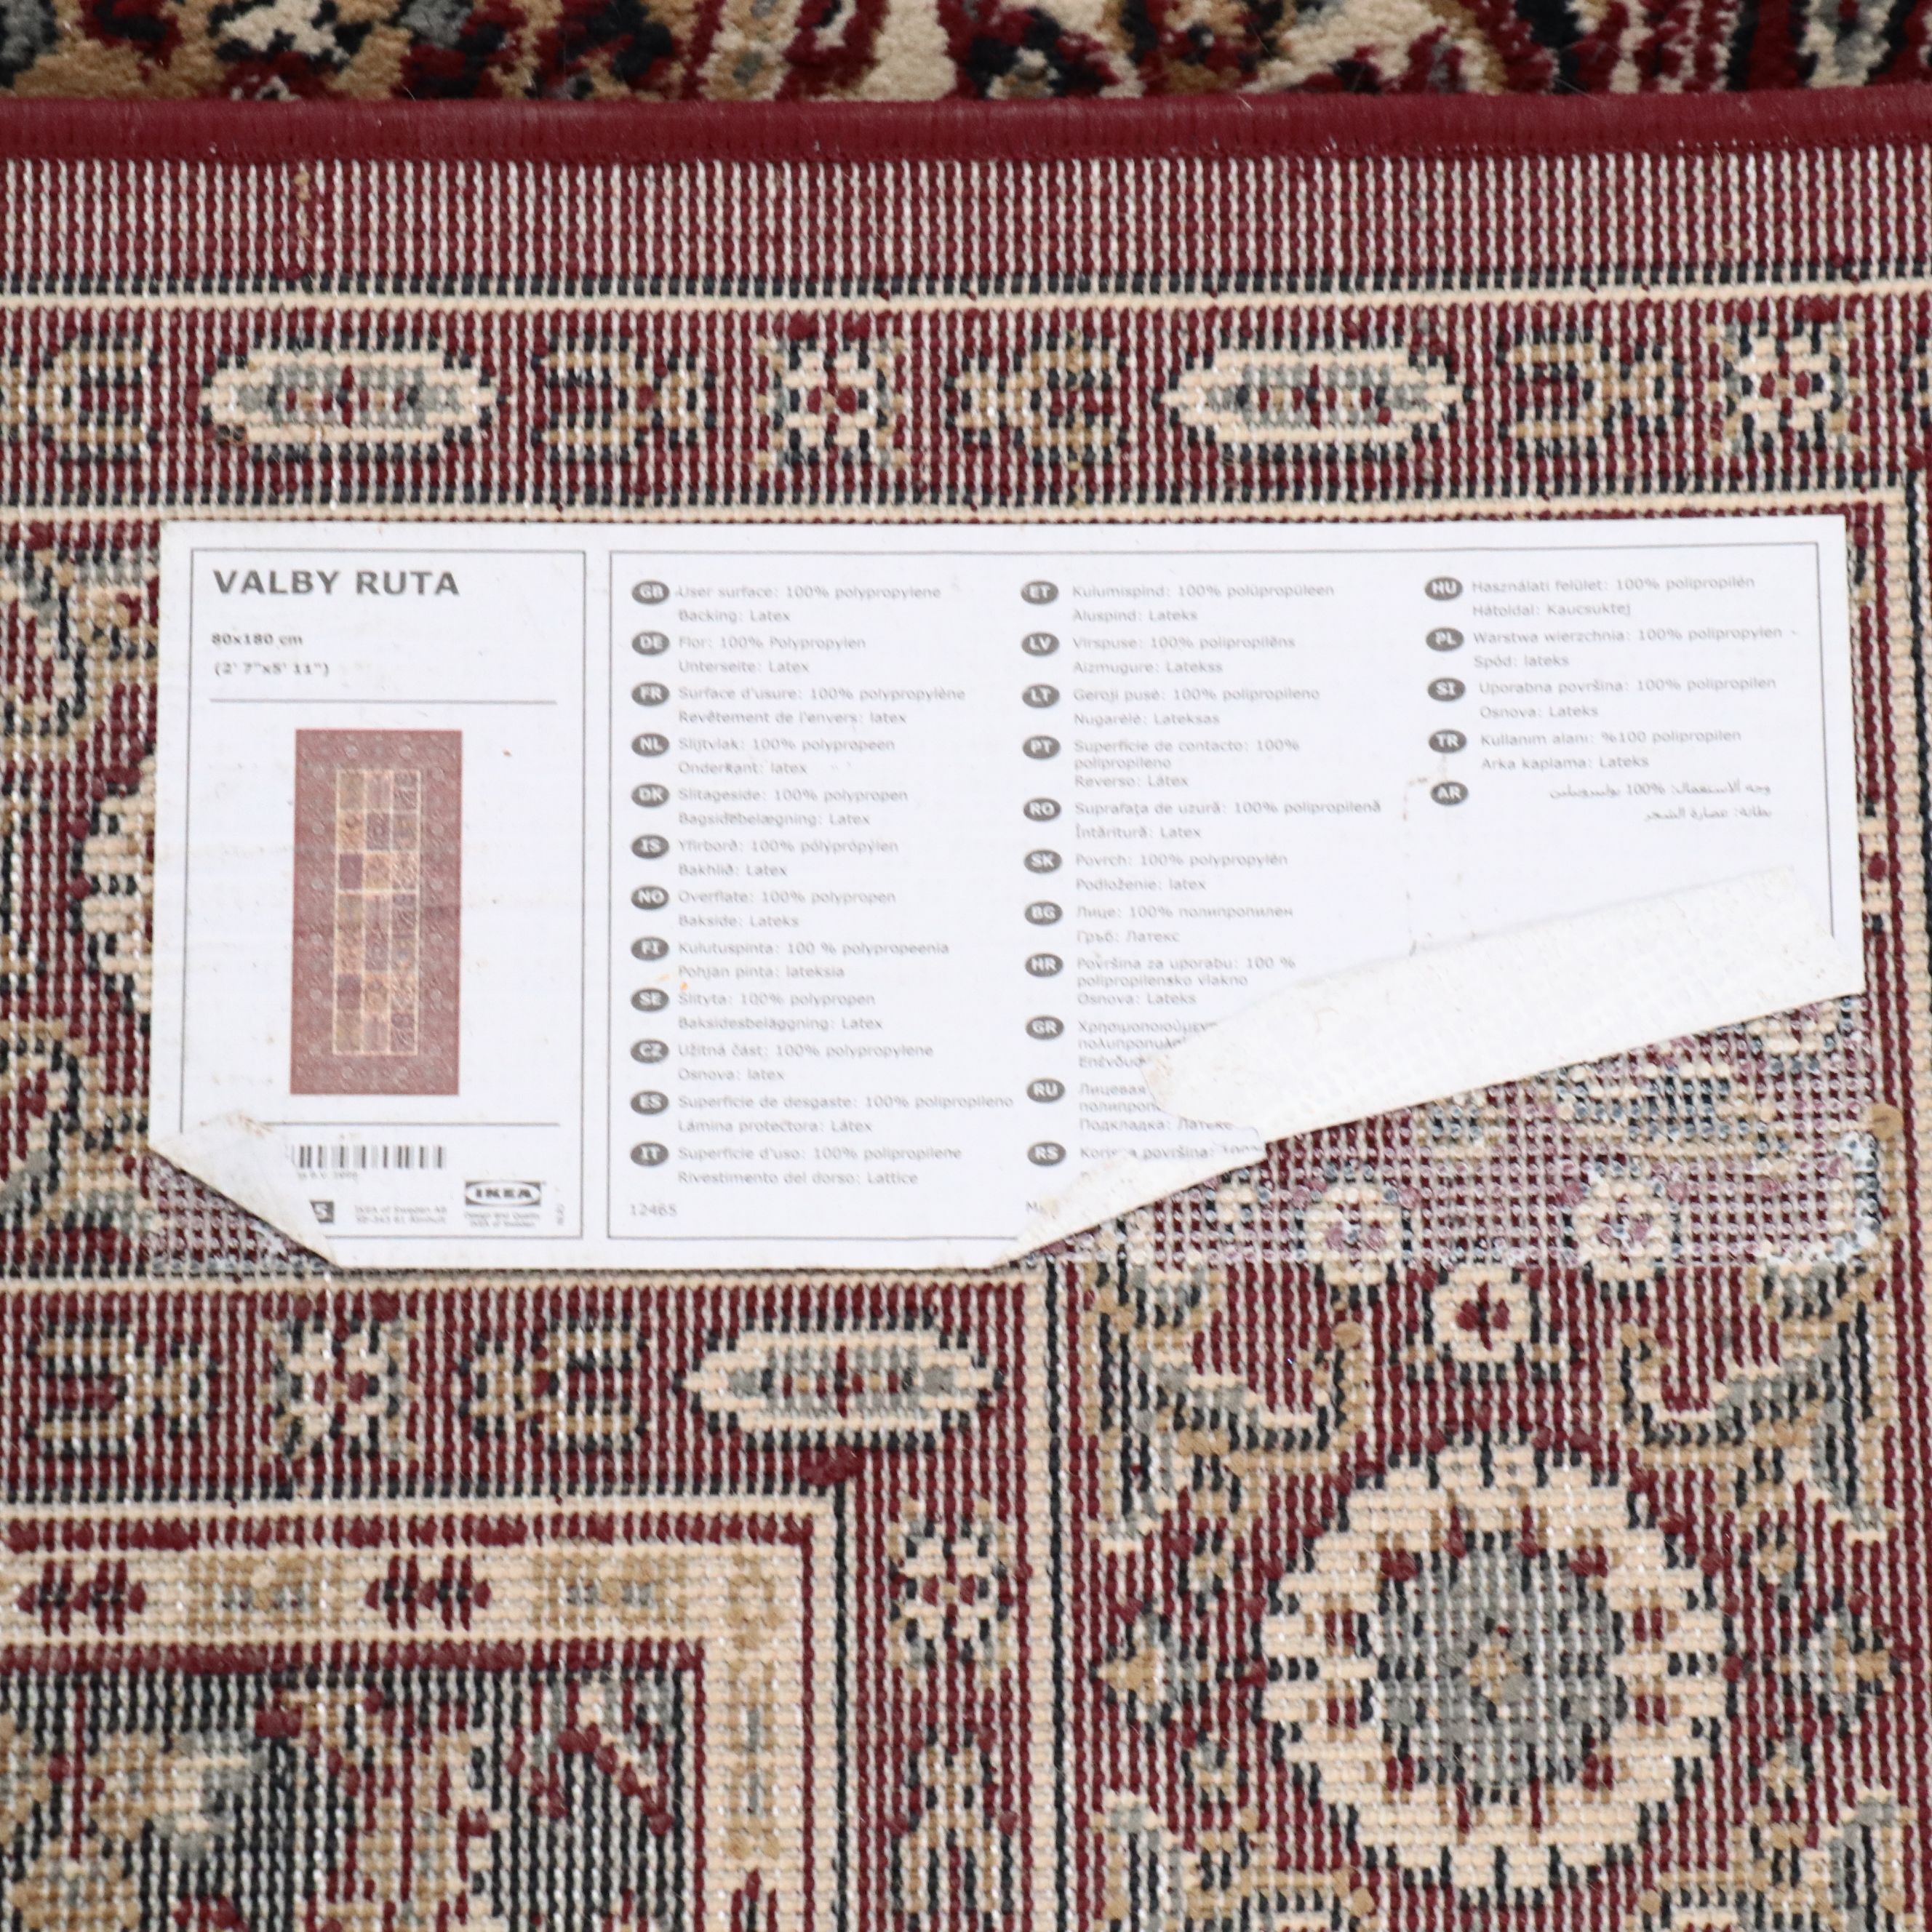 VALBY RUTA
80x180 cm
(2' 7"x5' 11")
IKEA of Sweden AB
IKEA
Design and Quality
IKEA of Sweden
GB User surface: 100% polypropylene
Backing: Latex
DE Flor: 100% Polypropylen
Unterseite: Latex
FR Surface d'usure: 100% polypropylène
Revêtement de l'envers: latex
NL Slijtvlak: 100% polypropeen
Onderkant: latex
DK Slitageside: 100% polypropen
Bagsidebelægning: Latex
IS Yfirborð: 100% pólýprópýlen
Bakhlið: Latex
NO Overflate: 100% polypropen
Bakside: Lateks
FI Kulutuspinta: 100 % polypropeenia
Pohjan pinta: lateksia
SE Slityta: 100% polypropen
Baksidesbeläggning: Latex
CZ Užitná část: 100% polypropylene
Osnova: latex
ES Superficie de desgaste: 100% polipropileno
Lámina protectora: Látex
IT Superficie d'uso: 100% polipropilene
Rivestimento del dorso: Lattice
12465
ET Kulumispind: 100% polüpropüleen
Aluspind: Lateks
LV Virspuse: 100% polipropilēns
Aizmugure: Latekss
LT Geroji pusė: 100% polipropileno
Nugarėlė: Lateksas
PT Superfície de contacto: 100%
polipropileno
Reverso: Látex
RO Suprafaţa de uzură: 100% polipropilenă
Întăritură: Latex
SK Povrch: 100% polypropylén
Podloženie: latex
BG Лице: 100% полипропилен
Гръб: Латекс
HR Površina za uporabu: 100 %
polipropilensko vlakno
Osnova: Lateks
GR
RU Лицевая
Подкладка:
RS površina:
HU Használati felület: 100% polipropilén
Hátoldal: Kaucsuktej
PL Warstwa wierzchnia: 100% polipropylen
Spód: lateks
SI Uporabna površina: 100% polipropilen
Osnova: Lateks
TR Kullanım alanı: %100 polipropilen
Arka kaplama: Lateks
AR وجه الاستعمال: 100%
بطانة: عصارة الشجر